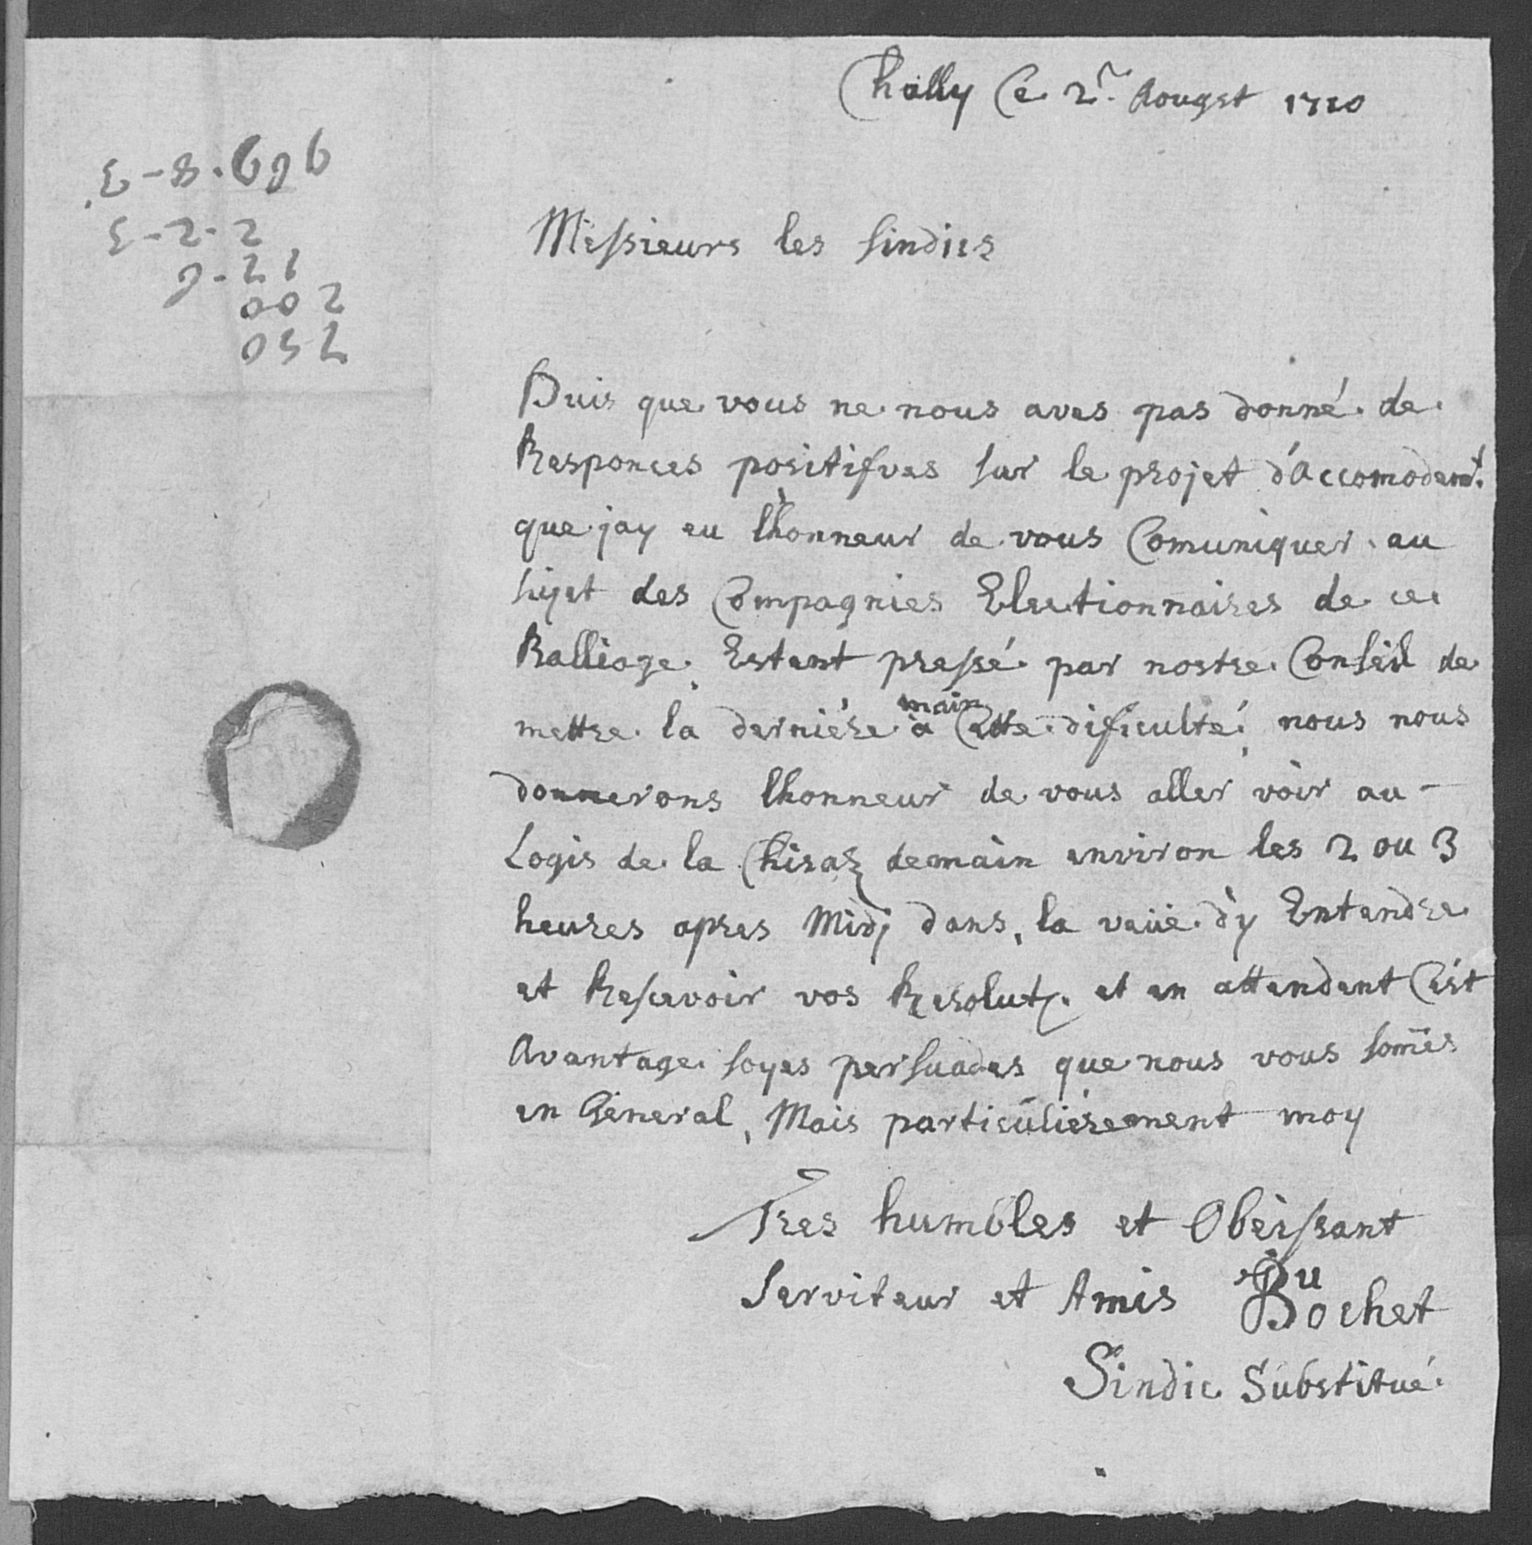 Chally Ce 2.r Aougst 1710
Messieurs les sindics
Puis que vous ne nous aves pas donné de
Responces positifves sur le projet d'Accomodemt.
que jay eu lhonneur de vous Comuniquer au
sujet des Compagnies Electionnaires de ce
Balliage. Estant pressé par nostre Conseil de
mettre la derniére main à Cette dificulté, nous nous
donnerons lhonneur de vous aller voir au-
Logis de la Chisaz demain environ les 2 ou 3
heures apres Midj dans la veüe d'y Entendre
et Rescevoir vos Resolut. et en attendent Cést
Avantage soyes persuades que nous vous somes
en General, Mais particulièrement moy
Tres humbles et Obeissant
Serviteur et Amis Du Bochet
Sindic Substitué
969.8-3.
2-2-3
12-9
200
750